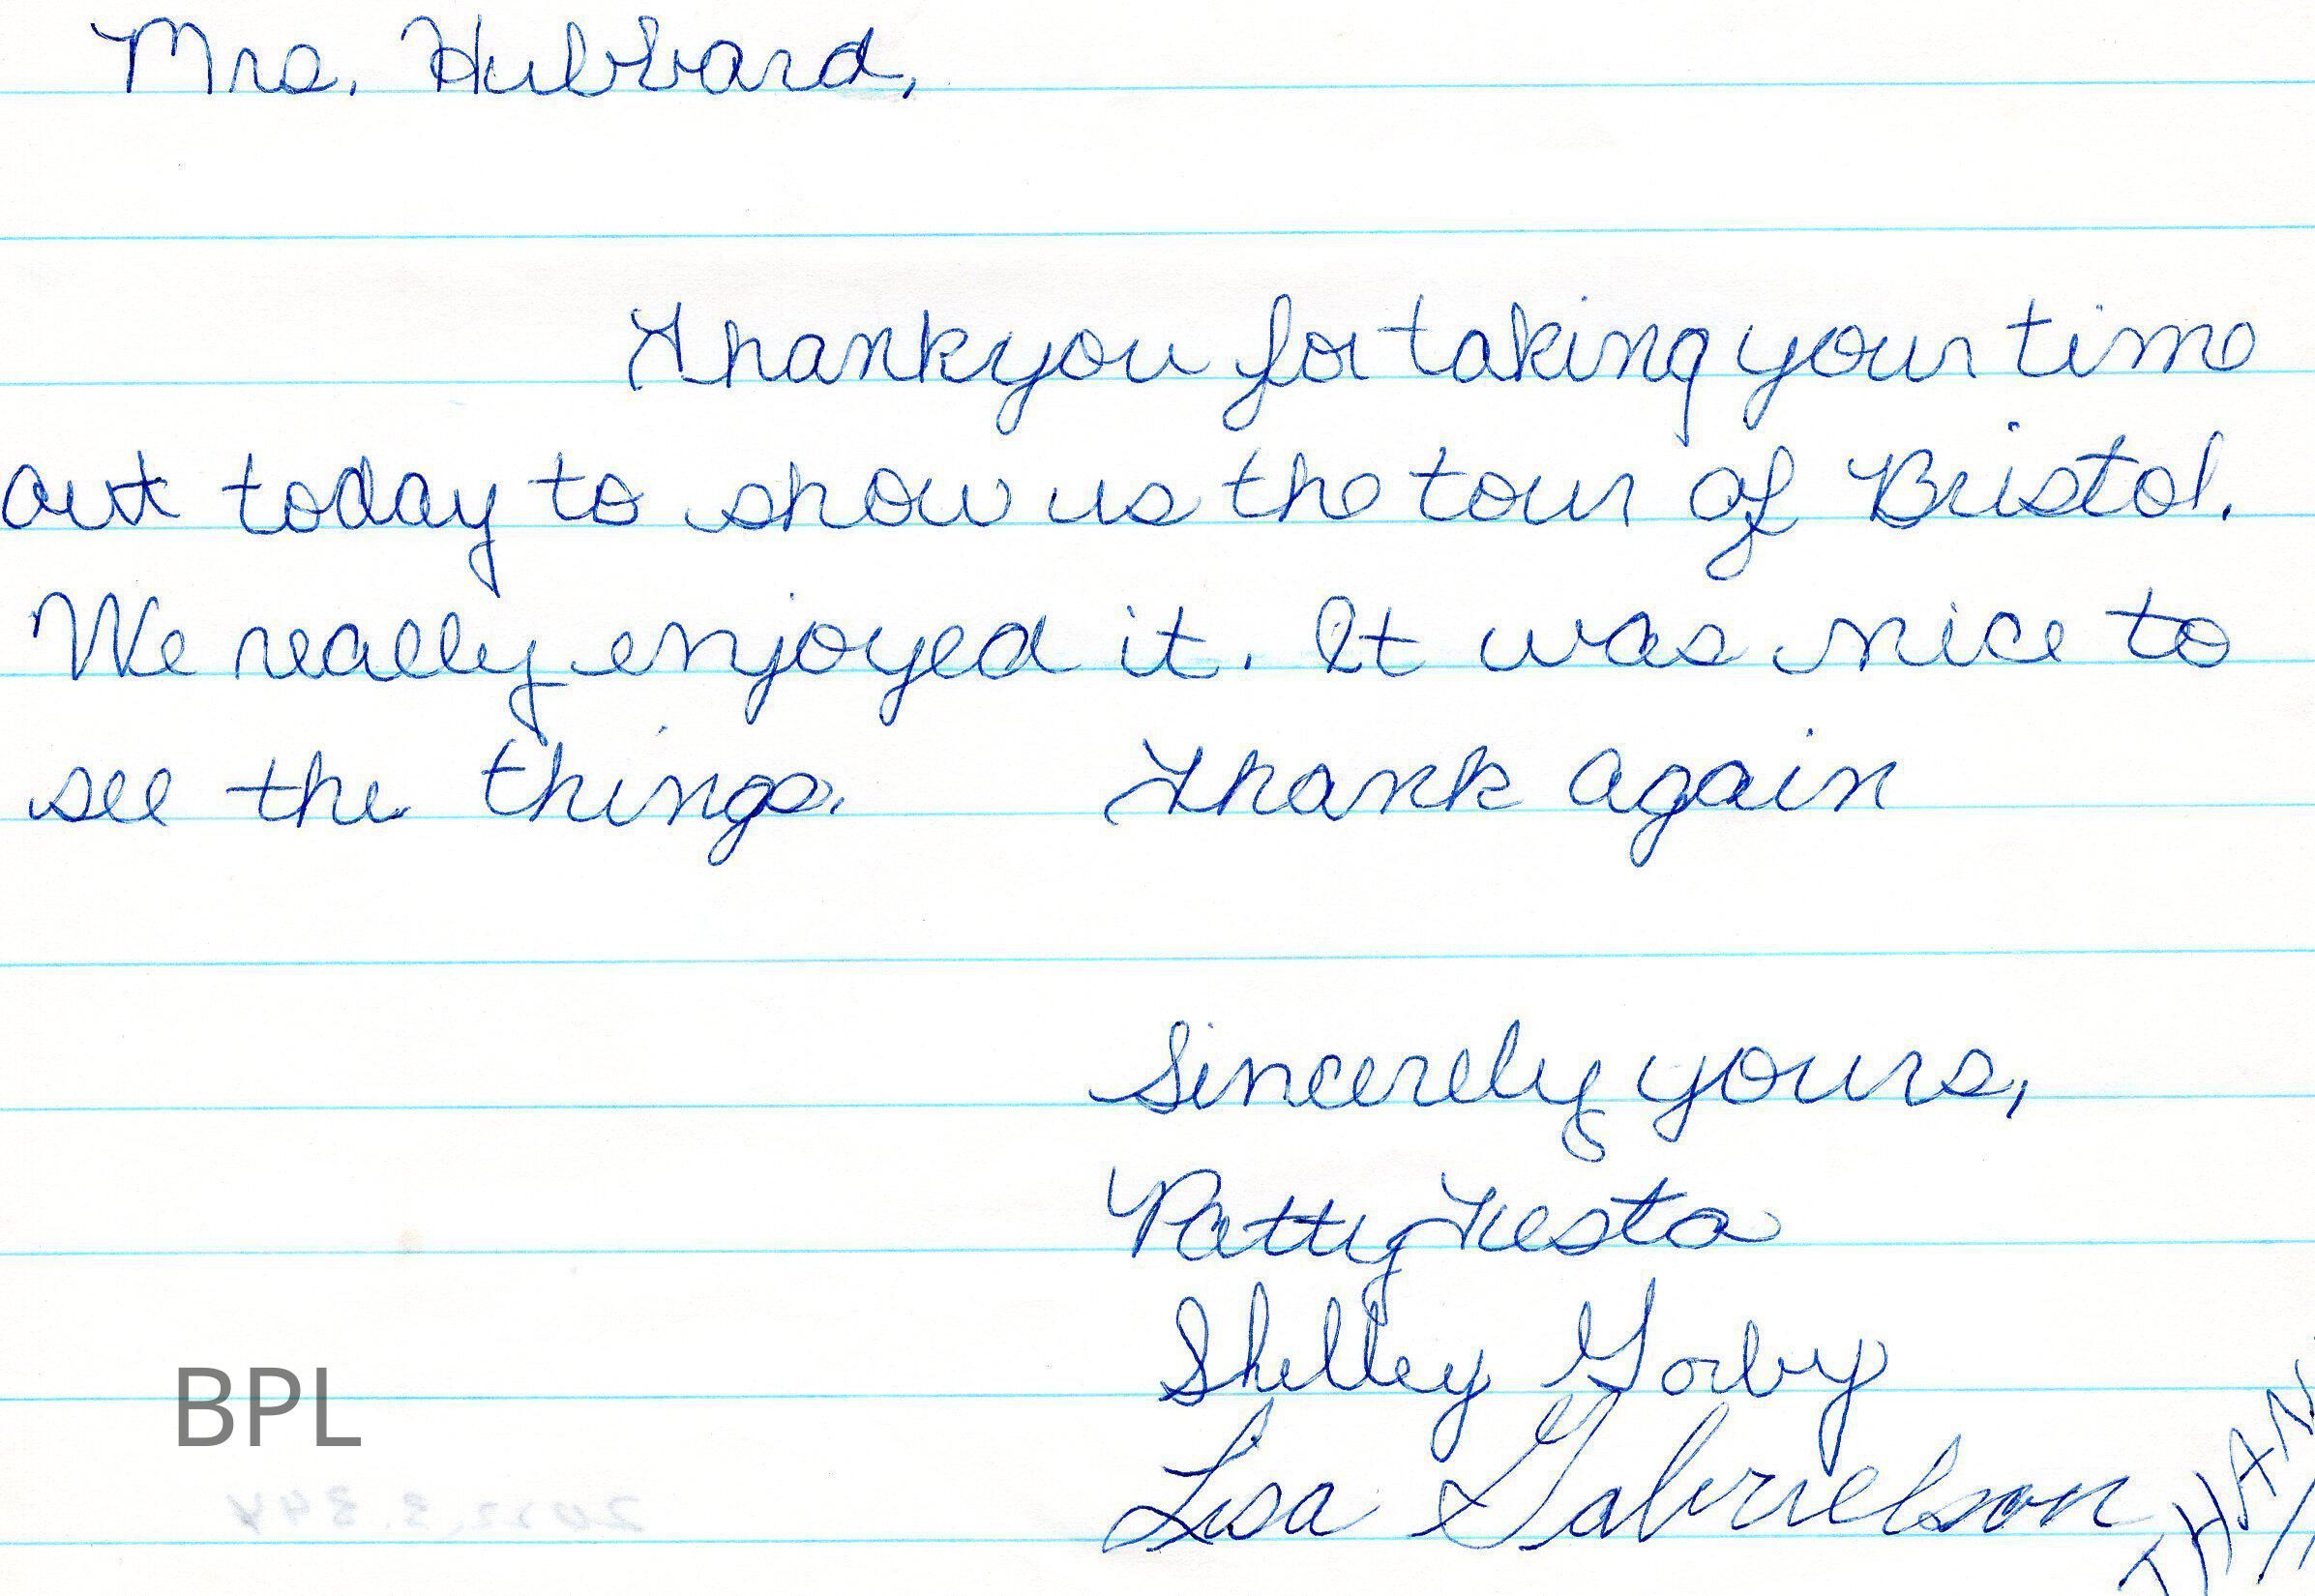 Mrs. Hubbard,
Thankyou for taking your time
out today to show us the tour of Bristol.
We really enjoyed it. It was nice to
see the things. Thank again
Sincerely yours,
Patty Testa
Shelley Gorby
Lisa Gabrielson
THAN
BPL